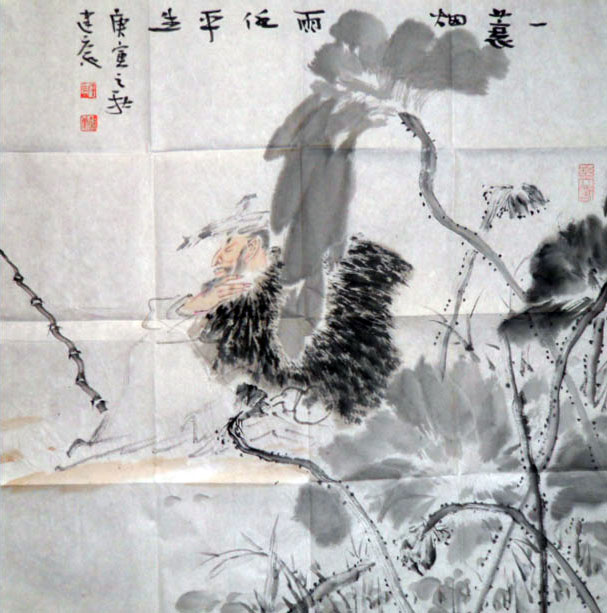 一蓑烟雨任平生
庚寅之秋